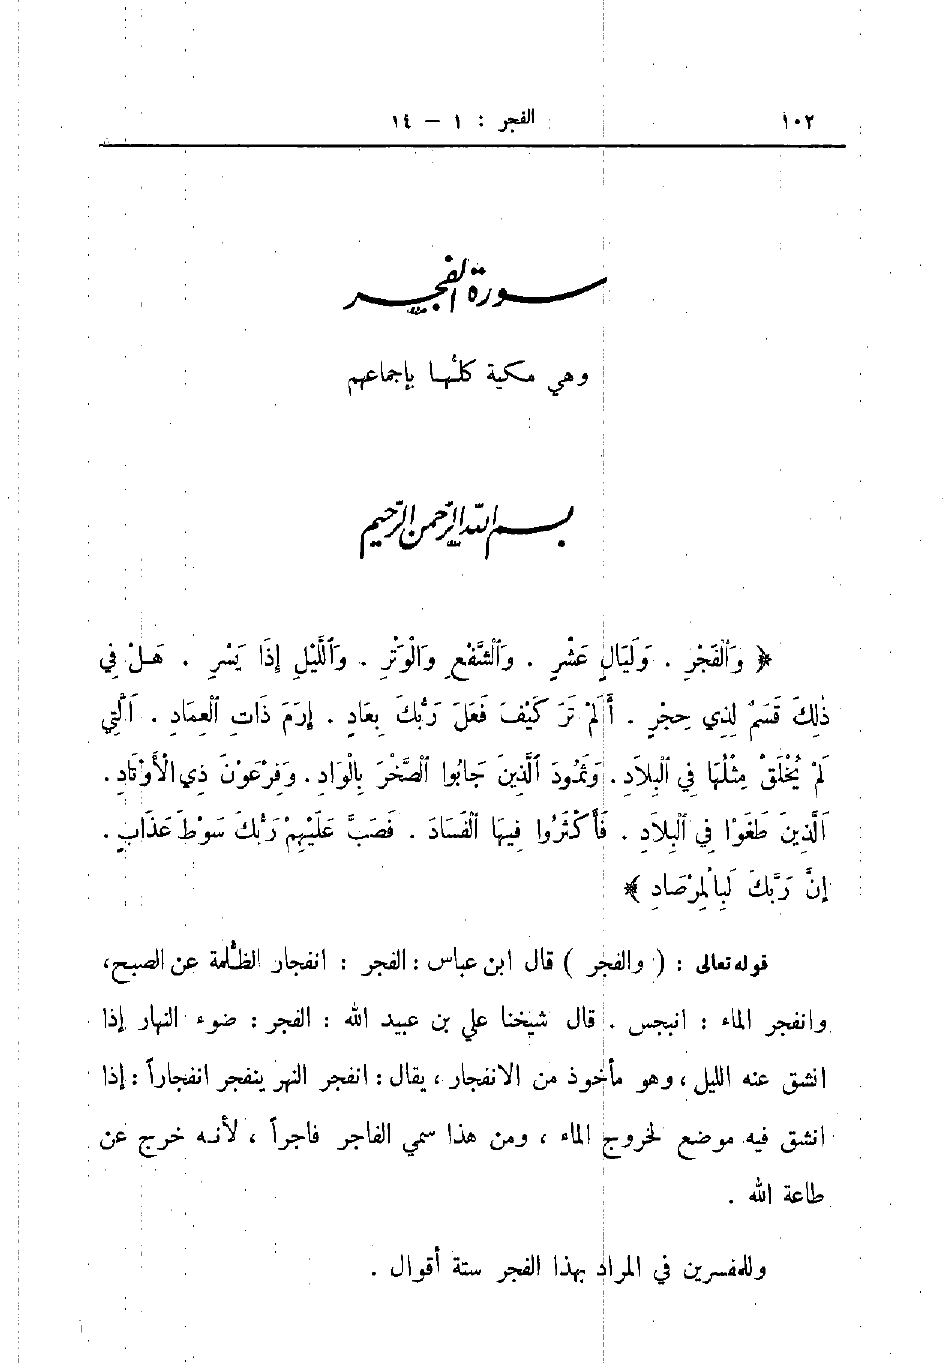 ١٠٢ الفجر : ١ – ١٤
سورة الفجر
وهي مكية كلُّها بإجماعهم
بسم الله الرحمن الرحيم
﴿ وَٱلْفَجْرِ . وَلَيَالٍ عَشْرٍ . وَٱلشَّفْعِ وَالْوَتْرِ . وَٱللَّيْلِ إِذَا يَسْرِ . هَلْ فِي
ذٰلِكَ قَسَمٌ لِذِي حِجْرٍ . أَلَمْ تَرَ كَيْفَ فَعَلَ رَبُّكَ بِعَادٍ . إِرَمَ ذَاتِ ٱلْعِمَادِ . ٱلَّتِي
لَمْ يُخْلَقْ مِثْلُهَا فِي ٱلْبِلاَدِ . وَثَمُودَ ٱلَّذِينَ جَابُوا ٱلصَّخْرَ بِالْوَادِ . وَفِرْعَوْنَ ذِي الْأَوْتَادِ .
ٱلَّذِينَ طَغَوْا فِي ٱلْبِلاَدِ . فَأَكْثَرُوا فِيهَا ٱلْفَسَادَ . فَصَبَّ عَلَيْهِمْ رَبُّكَ سَوْطَ عَذَابٍ .
إِنَّ رَبَّكَ لَبِالْمِرْصَادِ ﴾
قوله تعالى : ( والفجر ) قال ابن عباس : الفجر : انفجار الظُّلمة عن الصبح،
وانفجر الماء : انبجس . قال شيخنا علي بن عبيد الله : الفجر : ضوء النهار إذا
انشق عنه الليل ، وهو مأخوذ من الانفجار ، يقال : انفجر النهر ينفجر انفجاراً : إذا
انشق فيه موضع لخروج الماء ، ومن هذا سمي الفاجر فاجراً ، لأنه خرج عن
طاعة الله .
وللمفسرين في المراد بهذا الفجر ستة أقوال .